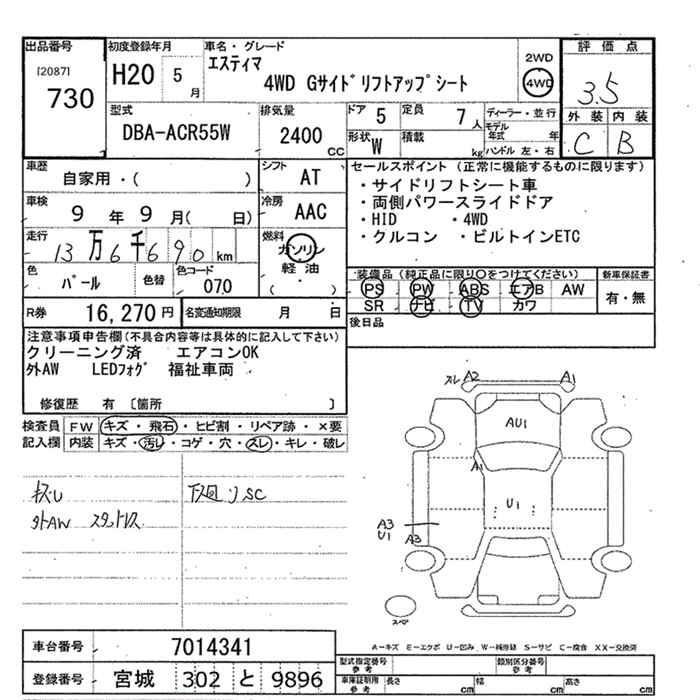 出品番号
[2087]
730
初度登録年月
H20 5 月
車名・グレード
エスティマ
4WD Gサイドリフトアップシート
2WD
4WD
評価点
3.5
外装 内装
C B
型式
DBA-ACR55W
排気量
2400 CC
ドア 5
定員 7 人
形状 W
積載 kg
ディーラー・並行
モデル年式 年
ハンドル 左・右
車歴
自家用・( )
シフト
AT
車検
9 年 9 月( 日)
冷房
AAC
走行
13万6千690 km
燃料
ガソリン
軽油
( )
色
パール
色替
色コード
070
R券 16,270円
名変通知期限 月 日
セールスポイント (正常に機能するものに限ります)
・サイドリフトシート車
・両側パワースライドドア
・HID ・4WD
・クルコン ・ビルトインETC
装備品 (純正品に限り○をつけてください)
PS PW ABS エアB AW
SR ナビ TV カワ
新車保証書
有・無
後日品
注意事項申告欄(不具合内容等は具体的に記入して下さい)
クリーニング済 エアコンOK
外AW LEDフォグ 福祉車両
修復歴 有 〔箇所 〕
検査員記入欄
FW キズ・飛石・ヒビ割・リペア跡・×要
内装 キズ・汚レ・コゲ・穴・スレ・キレ・破レ
下廻リSC
外AW スタッドレス
スレ A2 A1
AU1
A1
U1
A3
U1 A3
スペア
A-キズ E-エクボ U-凹み W-補修跡 S-サビ C-腐食 XX-交換済
車台番号 7014341
登録番号 宮城 302 と 9896
型式指定番号 参考
類別区分番号 参考
車庫証明用 参考
長さ cm 幅 cm 高さ cm